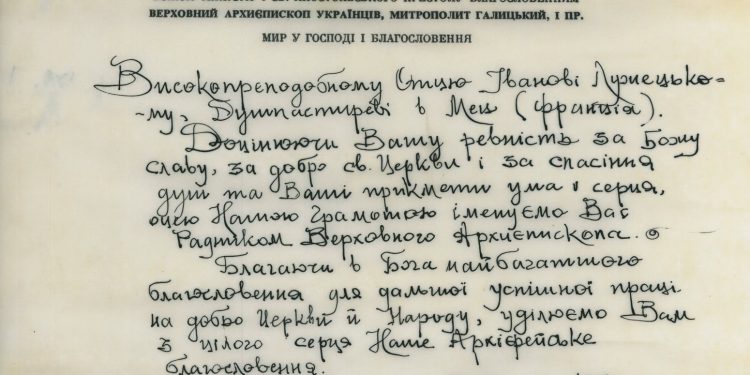 ВЕРХОВНИЙ АРХИЄПИСКОП УКРАЇНЦІВ, МИТРОПОЛИТ ГАЛИЦЬКИЙ, І ПР.
МИР У ГОСПОДІ І БЛАГОСЛОВЕННЯ
Високопреподобному Отцю Іванові
му, Душпастиреві в Мец (Франція).
Доцінюючи Вашу ревність за Божу
славу, за добро св. Церкви і за спасіння
душ та Ваші прикмети ума і серця,
оцею Нашою Грамотою іменуємо Вас
Радником Верховного Архиєпископа.
Благаючи в Бога найбагатшого
благословення для дальшої успішної праці
на добро Церкви й Народу, уділюємо Вам
з цілого серця Наше Архієрейське
благословення.